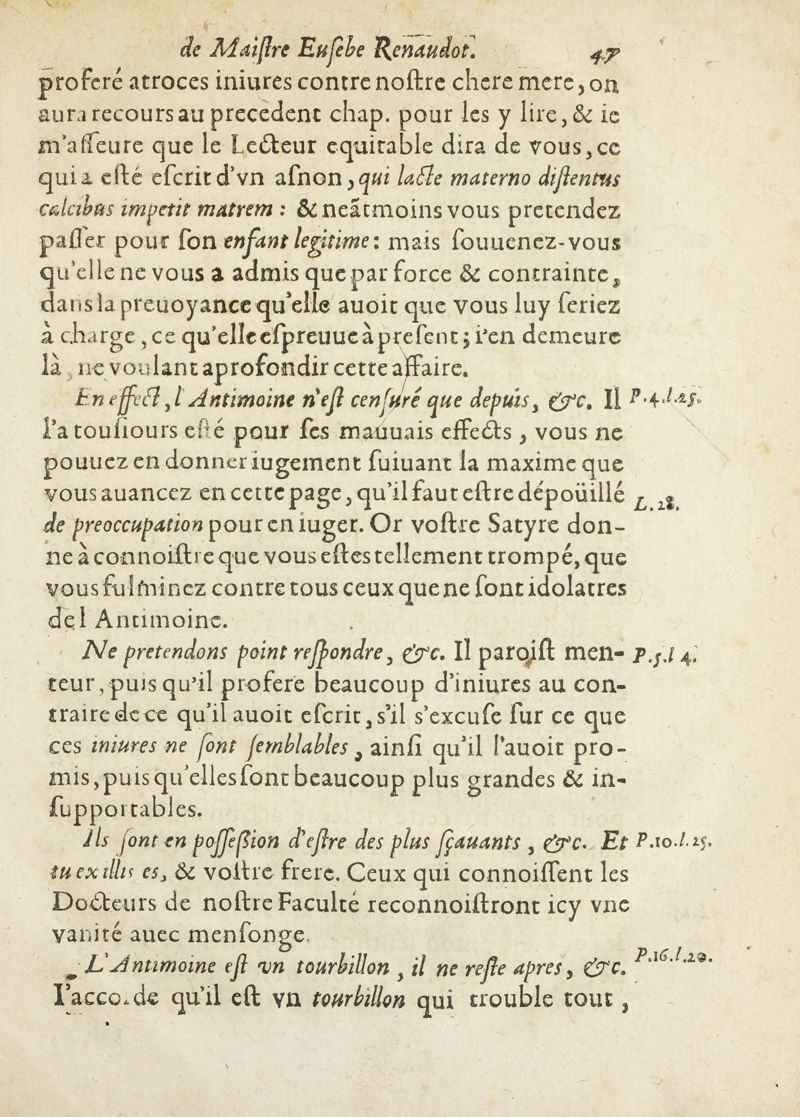 de Maiſtre Euſebe Renaudot. 47
proferé atroces iniures contre noſtre chere mere, on
aura recours au precedent chap. pour les y lire, & ie
m'aſſeure que le Lecteur equitable dira de vous, ce
qui a eſté eſcrit d'vn aſnon, qui lacte materno diſtentus
calcibus impetit matrem : & neātmoins vous pretendez
paſſer pour ſon enfant legitime : mais ſouuenez-vous
qu'elle ne vous a admis que par force & contrainte,
dans la preuoyance qu'elle auoit que vous luy ſeriez
à charge, ce qu'elle eſpreuue à preſent; i'en demeure
là, ne voulant aprofondir cette affaire.
En effect, l'Antimoine n'eſt cenſuré que depuis, &c. Il P. 4. l. 25.
l'a touſiours eſté pour ſes mauuais effects, vous ne
pouuez en donner iugement ſuiuant la maxime que
vous auancez en cette page, qu'il faut eſtre dépoüillé L. 28.
de preoccupation pour en iuger. Or voſtre Satyre don-
ne à connoiſtre que vous eſtes tellement trompé, que
vous fulminez contre tous ceux que ne ſont idolatres
del Antimoine.
Ne pretendons point reſpondre, &c. Il paroiſt men- P. 5. l 4.
teur, puis qu'il profere beaucoup d'iniures au con-
traire de ce qu'il auoit eſcrit, s'il s'excuſe ſur ce que
ces iniures ne ſont ſemblables, ainſi qu'il l'auoit pro-
mis, puis qu'elles ſont beaucoup plus grandes & in-
ſupportables.
Ils ſont en poſſeſſion d'eſtre des plus ſçauants, &c. Et P. 10. l. 25.
tu ex illis es, & voſtre frere. Ceux qui connoiſſent les
Docteurs de noſtre Faculté reconnoiſtront icy vne
vanité auec menſonge.
L'Antimoine eſt vn tourbillon, il ne reſte apres, &c. P. 16. l. 20.
I'accorde qu'il eſt vn tourbillon qui trouble tout,